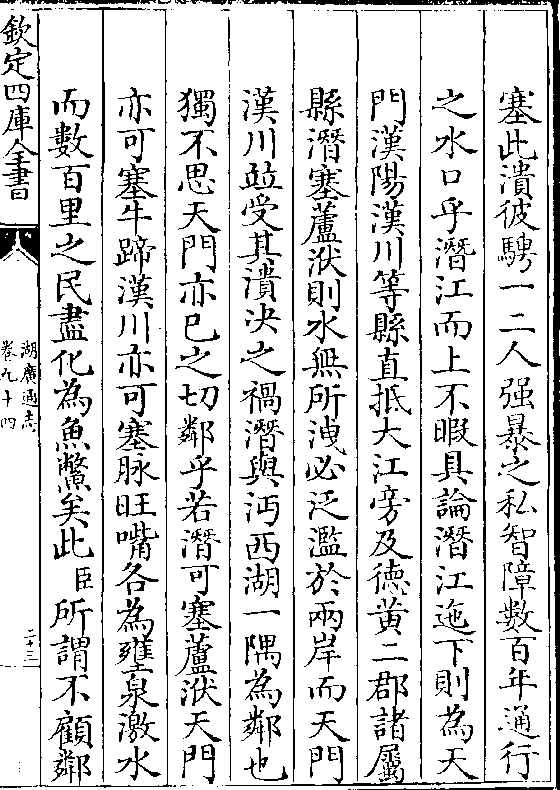 塞此潰彼騁一二人强暴之私智障數百年通行
之水口乎潛江而上不暇具論潛江迤下則為天
門漢陽漢川等縣直抵大江旁及德黄二郡諸屬
縣潛塞蘆洑則水無所洩必泛濫於兩岸而天門
漢川並受其潰决之禍潛與沔西湖一隅為鄰也
獨不思天門亦已之切鄰乎若潛可塞蘆洑天門
亦可塞牛蹄漢川亦可塞脉旺嘴各為壅泉激水
而數百里之民盡化為魚鱉矣此臣所謂不顧鄰
欽定四庫全書
湖廣通志
卷九十四
二十三